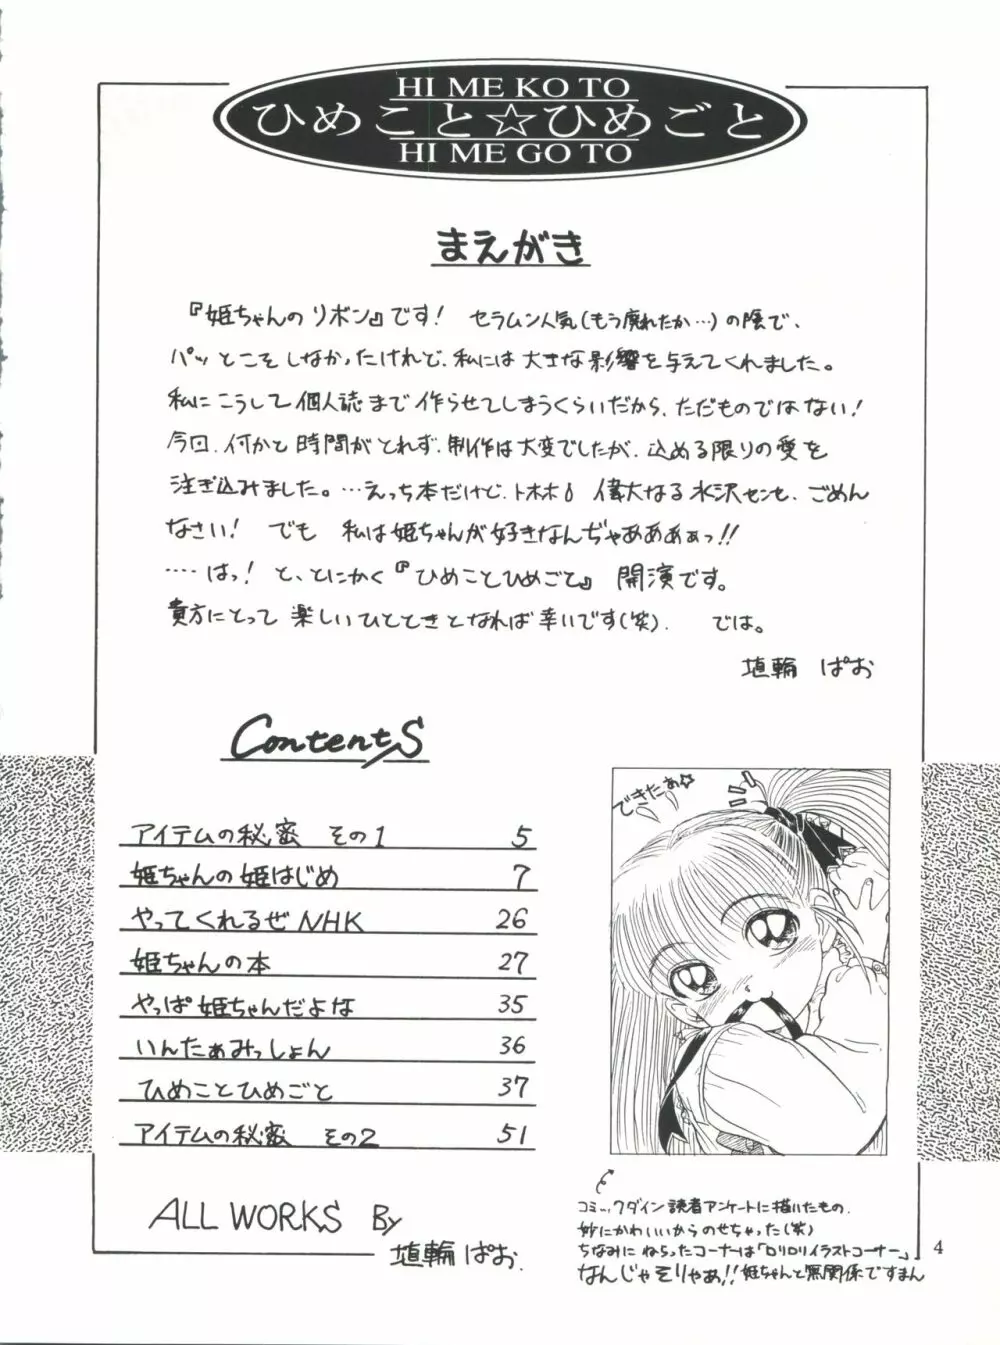 HI ME KO TO
ひめこと☆ひめごと
HI ME GO TO
まえがき
『姫ちゃんのリボン』です! セラムン人気(もう廃れたか…)の陰で、
パッとこそしなかったけれど、私には大きな影響を与えてくれました。
私にこうして個人誌まで作らせてしまうくらいだから、ただものではない!
今回、何かと時間がとれず、制作は大変でしたが、込める限りの愛を
注ぎ込みました。…えっち本だけど、トホホ 偉大なる水沢センセ、ごめん
なさい! でも 私は姫ちゃんが好きなんぢゃあああぁっ!!
‥‥はっ! と、とにかく『ひめことひめごと』開演です。
貴方にとって楽しいひとときとなれば幸いです(笑). では。
埴輪 ぱお
ContentS
アイテムの秘密 その1 5
姫ちゃんの姫はじめ 7
やってくれるぜNHK 26
姫ちゃんの本 27
やっぱ姫ちゃんだよな 35
いんたぁみっしょん 36
ひめことひめごと 37
アイテムの秘密 その2 51
できたぁ☆
ALL WORKS By
埴輪ぱお.
コミックダイン読者アンケートに描いたもの.
妙にかわいいからのせちゃった(笑)
ちなみに ねらったコーナーは「ロリロリイラストコーナー」
なんじゃそりゃあ!! 姫ちゃんと無関係ですまん
4